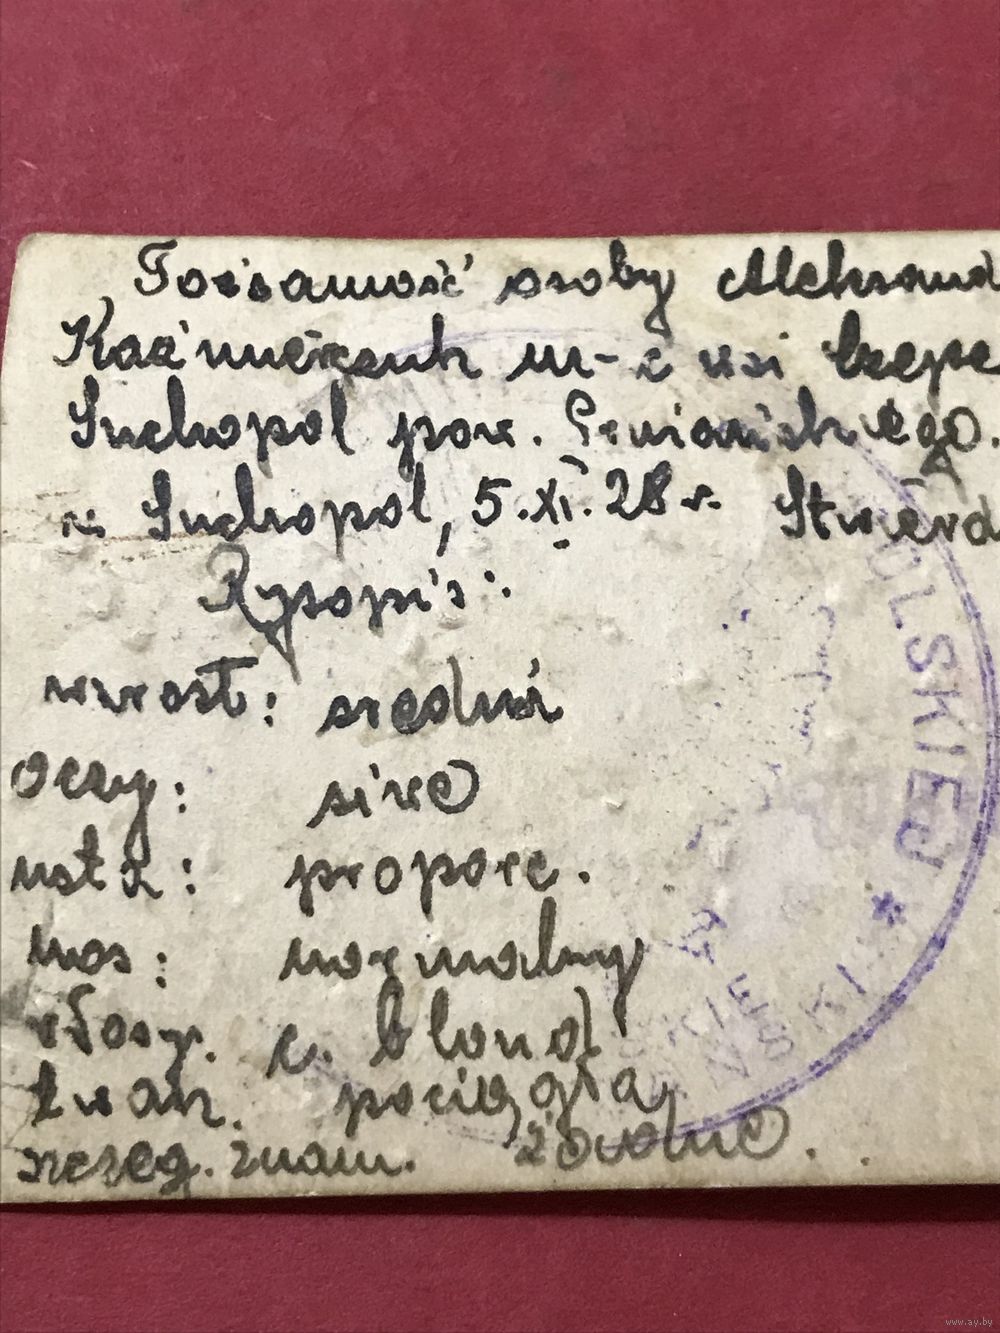 Tożsamość osoby Aleksand
Kaźmierczuk m-c wsi
Suchopol pow. Prużańskiego.
w Suchopol, 5.XI.28 r. Stwierd
Rysopis:
wzrost: średni
oczy: siwe
usta: proporc.
nos: normalny
włosy. c. blond
twarz. pociągła,
szczeg. znam. żadne.
OLSKIEJ *
SKIE
ŃSKI
www.ay.by